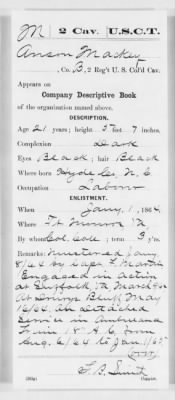 M | 2 Cav. | U.S.C.T.
Anson Mackey
, Co. B, 2 Reg't U. S. Col'd Cav.
Appears on
Company Descriptive Book
of the organization named above.
DESCRIPTION.
Age 21 years; height 5 feet 7 inches.
Complexion Dark
Eyes Black; hair Black
Where born Hyde Co, N.C.
Occupation Labor
ENLISTMENT.
When Jany. 1, 1864.
Where Ft. Monroe Va
By whom Col. Cole; term 3 y'rs.
Remarks: Mustered Jany.
8/64 by Capt.
Engaged in action
at Suffolk, Va March
At Drurys Bluff May
/64. On detached
Service in Ambulance
Train 18" A.C. from
Aug. 6/64 to Jan 1/65.
Smith
Copyist.